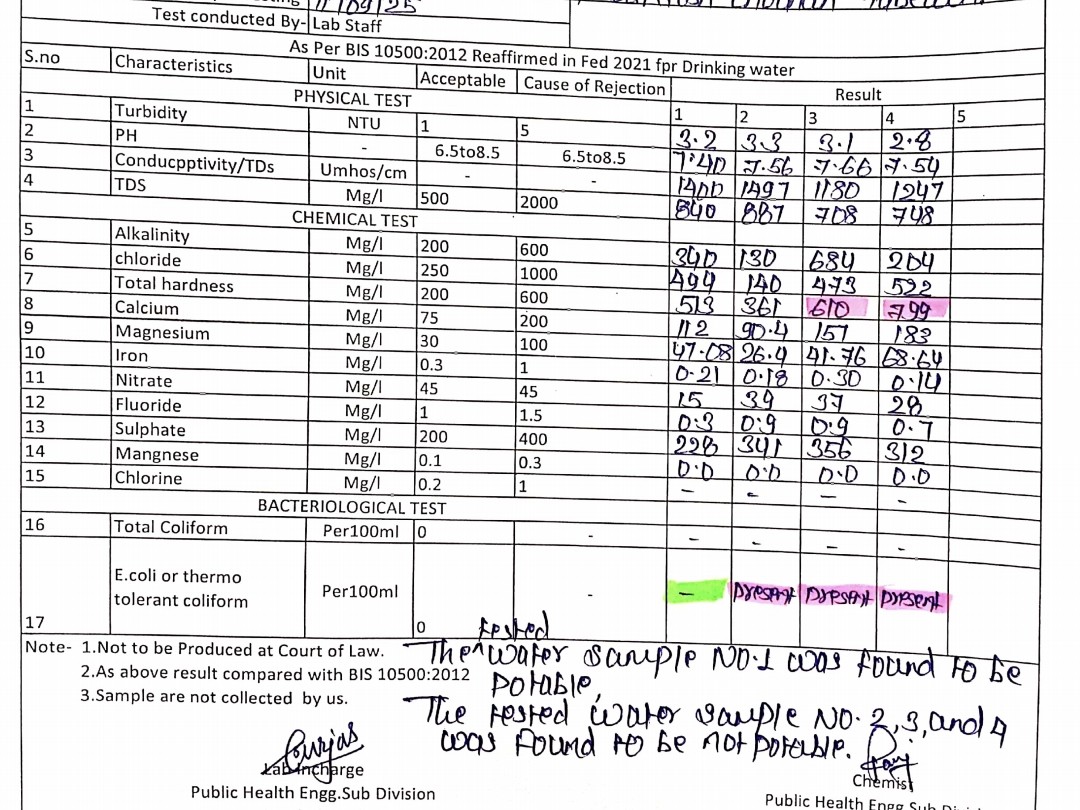 11/09/25
Test conducted By- Lab Staff
As Per BIS 10500:2012 Reaffirmed in Fed 2021 fpr Drinking water
S.no Characteristics Unit Acceptable Cause of Rejection Result
PHYSICAL TEST 1 2 3 4 5
1 Turbidity NTU 1 5 3.2 3.3 3.1 2.8
2 PH - 6.5to8.5 6.5to8.5 7.40 7.56 7.66 7.54
3 Conducpptivity/TDs Umhos/cm - - 1400 1497 1180 1247
4 TDS Mg/l 500 2000 840 887 708 748
CHEMICAL TEST
5 Alkalinity Mg/l 200 600 340 130 684 204
6 chloride Mg/l 250 1000 494 140 473 522
7 Total hardness Mg/l 200 600 513 361 610 799
8 Calcium Mg/l 75 200 112 90.4 157 183
9 Magnesium Mg/l 30 100 47.08 26.4 41.76 68.64
10 Iron Mg/l 0.3 1 0.21 0.18 0.30 0.14
11 Nitrate Mg/l 45 45 15 39 37 28
12 Fluoride Mg/l 1 1.5 0.3 0.9 0.9 0.7
13 Sulphate Mg/l 200 400 228 341 356 312
14 Mangnese Mg/l 0.1 0.3 0.0 0.0 0.0 0.0
15 Chlorine Mg/l 0.2 1 - - - -
BACTERIOLOGICAL TEST
16 Total Coliform Per100ml 0 - - - - -
17 E.coli or thermo
tolerant coliform Per100ml 0 - - Present Present Present
Note- 1.Not to be Produced at Court of Law.
2.As above result compared with BIS 10500:2012
3.Sample are not collected by us.
The ^ tested water sample NO.1 was found to be
potable.
The tested water sample NO. 2,3, and 4
was found to be not potable.
Lab Incharge
Public Health Engg.Sub Division
Chemist
Public Health Engg Sub